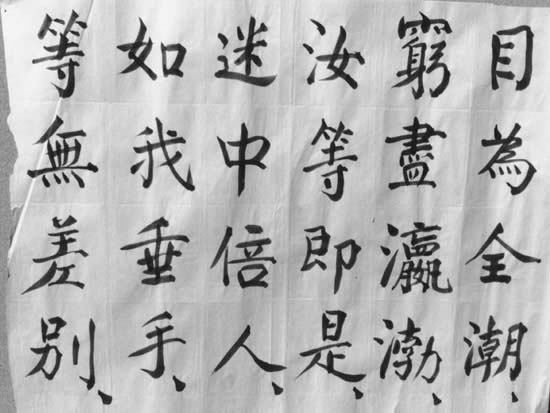 目為全潮、
窮盡瀛渤、
汝等即是、
迷中倍人、
如我垂手、
等無差別、